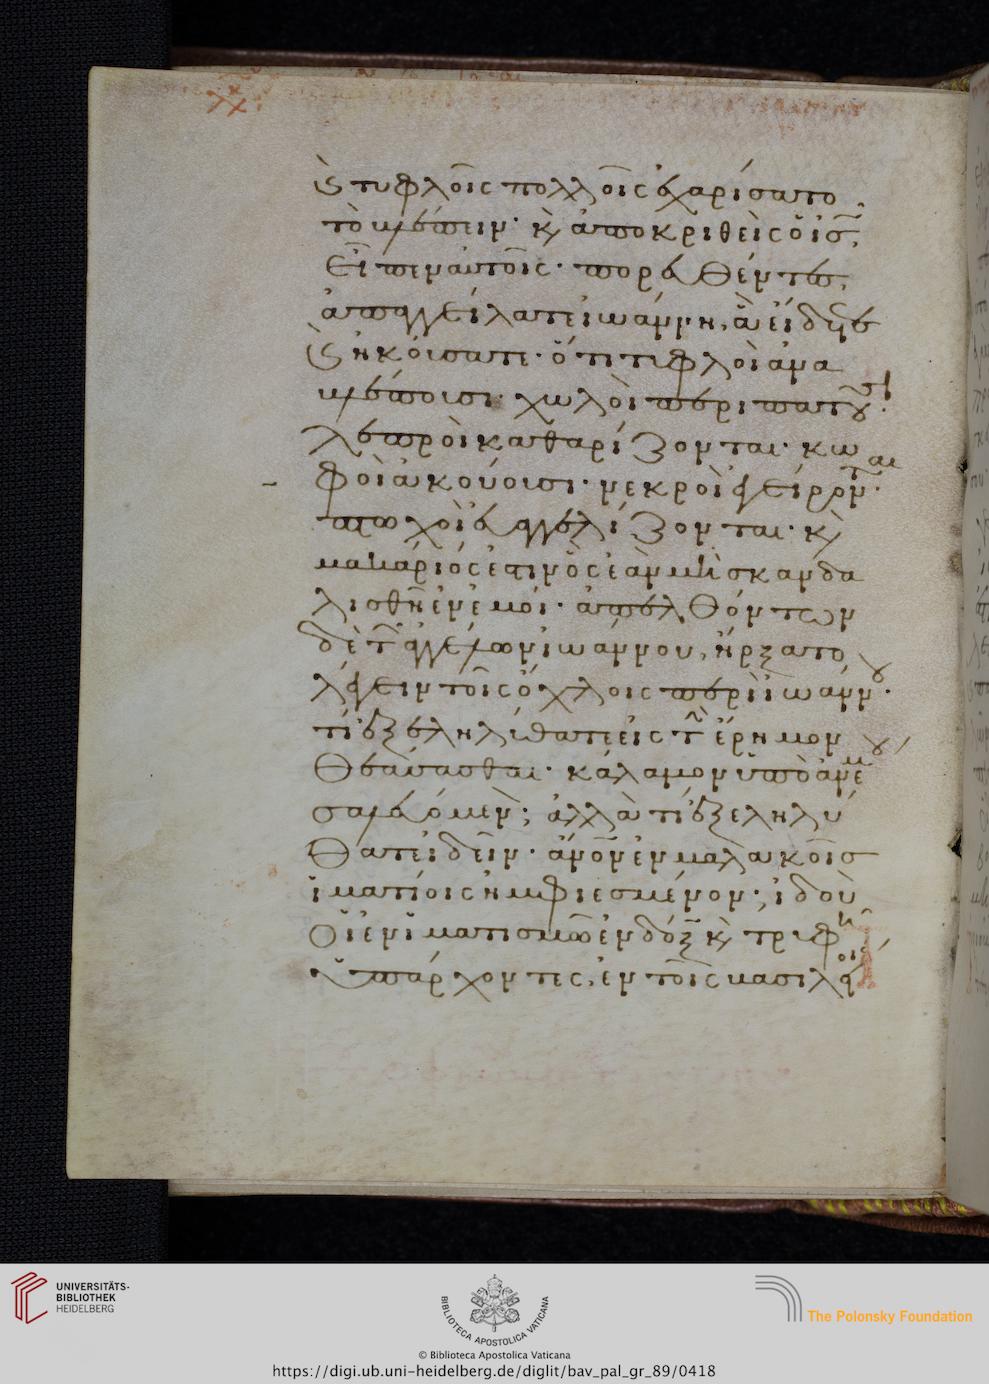 ϗ τυφλοῖς πολλοῖς ἐχαρίσατο
τὸ βλέπειν· ϗ ἀποκριθεὶς ὁ ἰς̅,
εἶπεν αὐτοῖς· πορευθέντες,
ἀπαγγείλατε ἰωάννη, ἃ εἴδετε
ϗ ἠκούσατε· ὅτι τυφλοὶ ἀνα
βλέπουσι· χωλοὶ περιπατοῦσι·
λεπροὶ καθαρίζονται· κω
φοὶ ἀκούουσι· νεκροὶ ἐγείρονται·
πτωχοὶ εὐαγγελίζονται· ϗ
μακάριός ἐστιν ὃς ἐὰν μὴ σκανδα
λισθῆ ἐν ἐμοί· ἀπελθόντων
δὲ τῶν ἀγγέλων ἰωάννου, ἤρξατο
λέγειν τοῖς ὄχλοις περὶ ἰωάννου·
τί ἐξεληλύθατε εἰς τὴν ἔρημον
θεάσασθαι· κάλαμον ὑπὸ ἀνέμου
σαλευόμενον; ἀλλὰ τί ἐξεληλύ
θατε ἰδεῖν· ἄνον̅ ἐν μαλακοῖς
ἱματίοις ἠμφιεσμένον; ἰδοὺ
οἱ ἐν ἱματισμῶ ἐνδόξω ϗ τρυφῆ
ὑπάρχοντες, ἐν τοῖς βασιλείοις
UNIVERSITÄTS-
BIBLIOTHEK
HEIDELBERG
BIBLIOTECA APOSTOLICA VATICANA
The Polonsky Foundation
© Biblioteca Apostolica Vaticana
https://digi.ub.uni-heidelberg.de/diglit/bav_pal_gr_89/0418